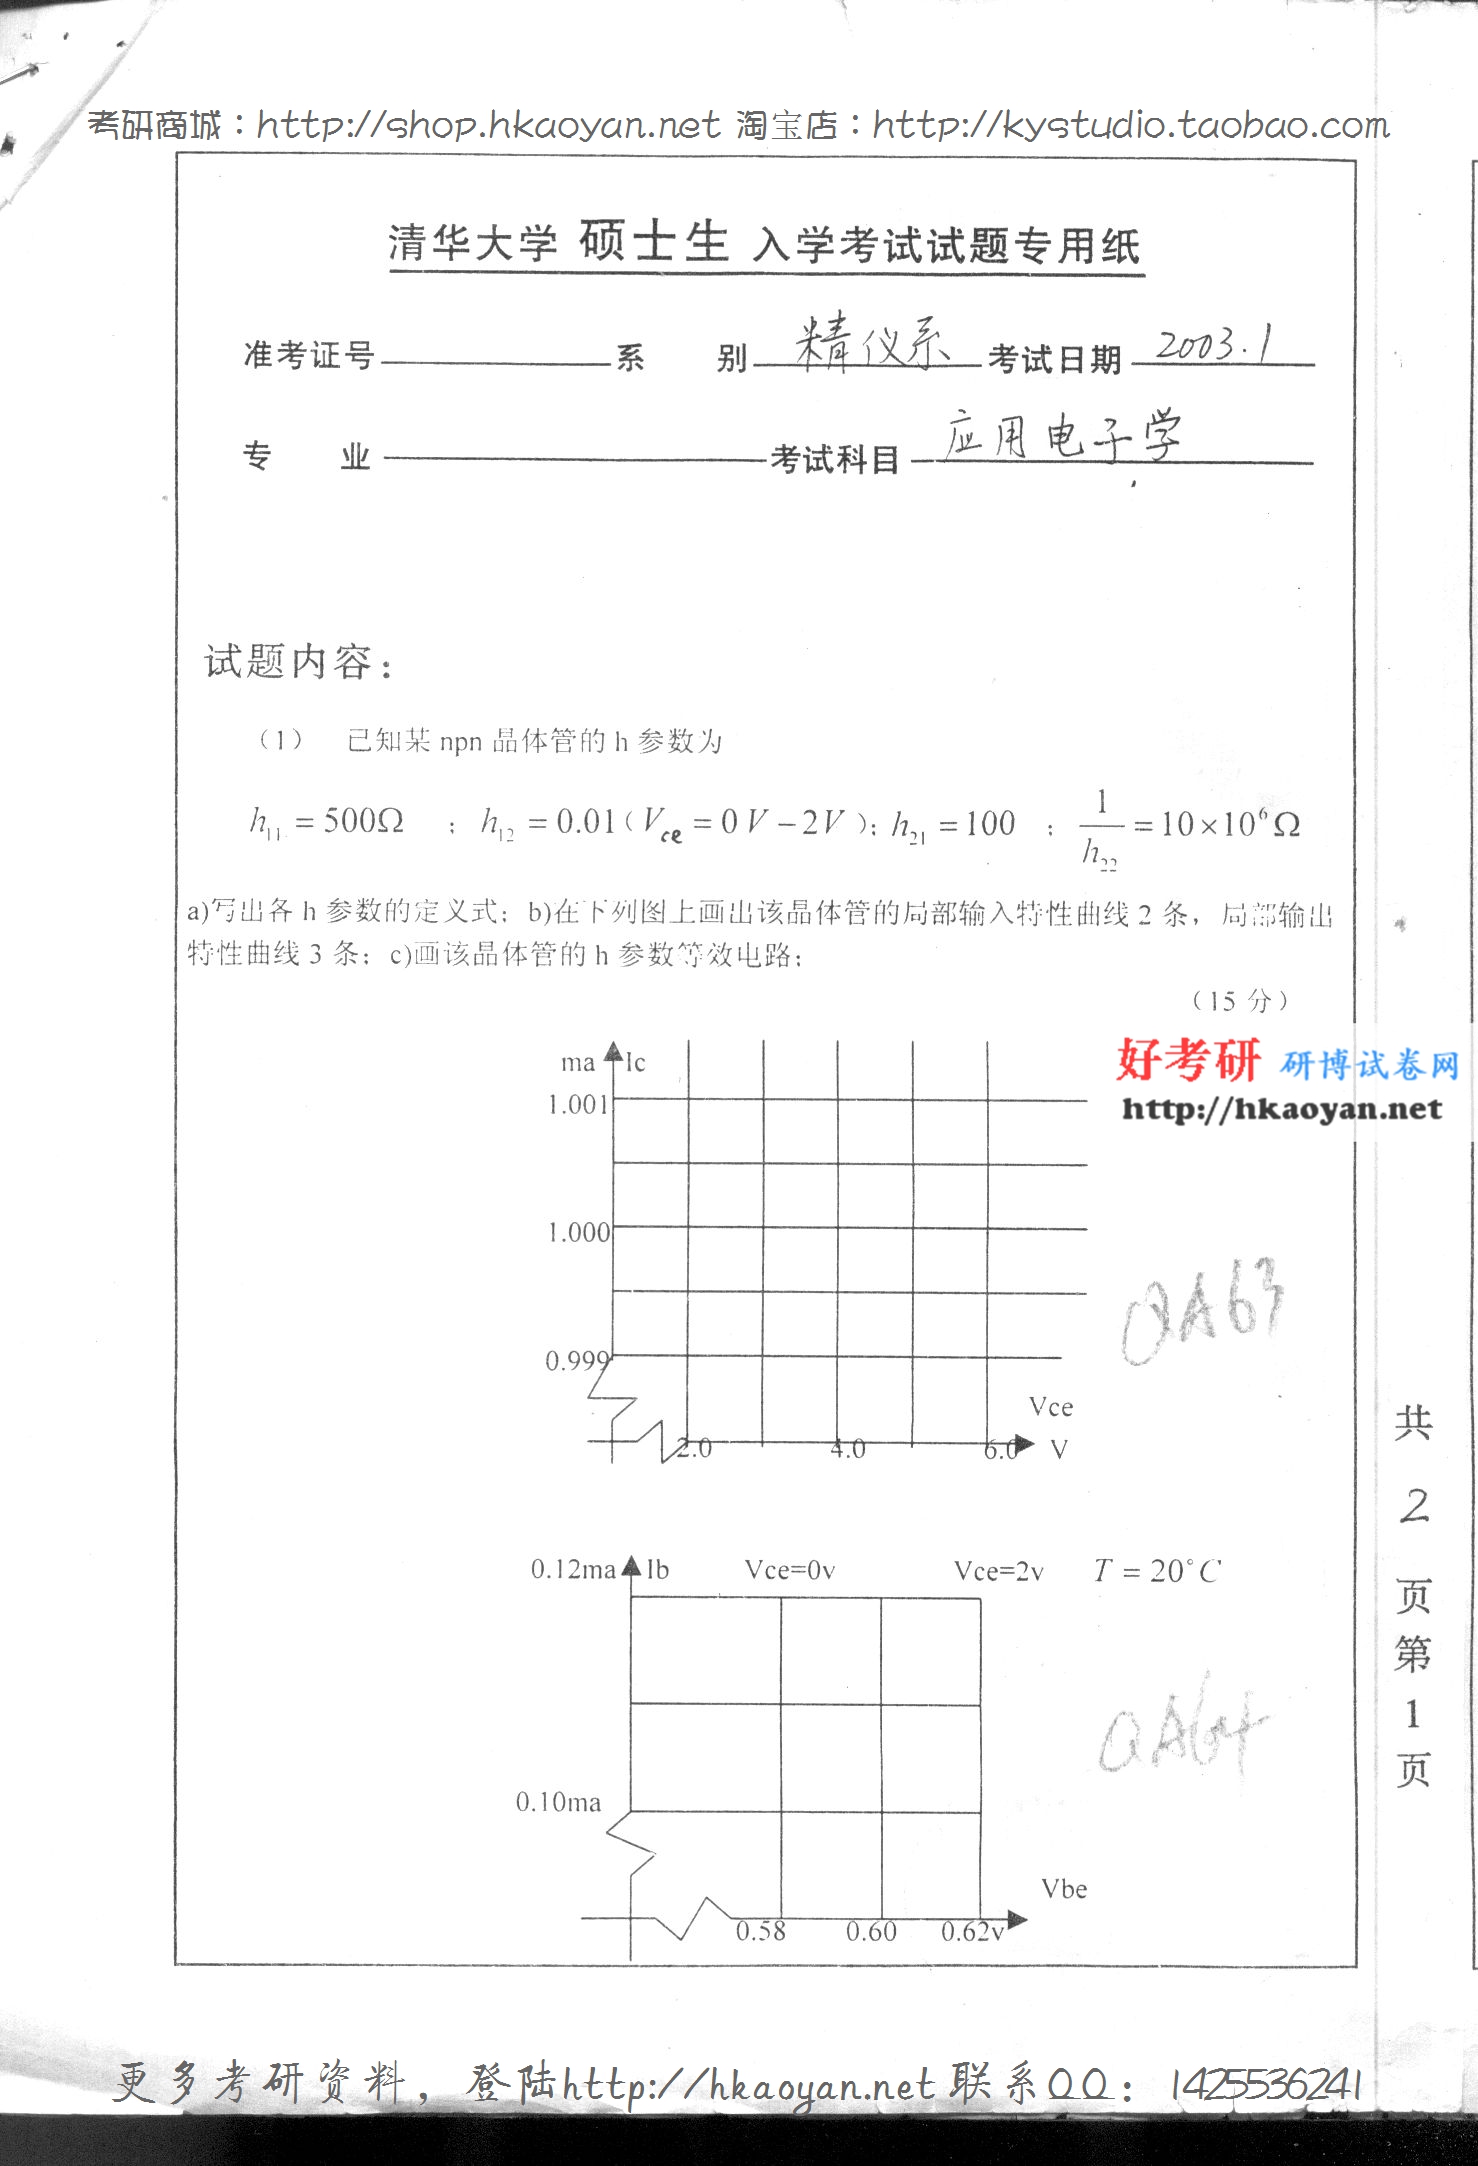 考研商城：http://shop.hkaoyan.net 淘宝店：http://kystudio.taobao.com
清华大学 硕士生 入学考试试题专用纸
准考证号 系 别 精仪系 考试日期 2003.1
专 业 考试科目 应用电子学
试题内容：
（1） 已知某 npn 晶体管的 h 参数为
h₁₁ = 500Ω ； h₁₂ = 0.01（V_ce = 0V－2V）；h₂₁ = 100 ； 1/h₂₂ = 10×10⁶Ω
a)写出各 h 参数的定义式；b)在下列图上画出该晶体管的局部输入特性曲线 2 条，局部输出
特性曲线 3 条；c)画该晶体管的 h 参数等效电路；
（15 分）
好考研 研博试卷网
http://hkaoyan.net
ma Ic
1.001
1.000
0.999
QA63
Vce
2.0 4.0 6.0 V
0.12ma Ib Vce=0v Vce=2v T = 20°C
QA64
0.10ma
Vbe
0.58 0.60 0.62v
共
2
页
第
1
页
更多考研资料，登陆http://hkaoyan.net联系QQ：1425536241